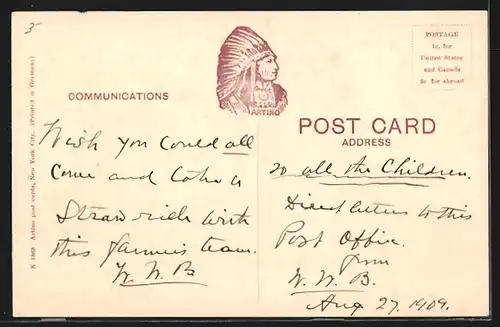 5
POSTAGE
1c. for
United States
and Canada
2c for abroad
ARTINO
COMMUNICATIONS
POST CARD
ADDRESS
N 1069 Artino post cards, New York City. (Printed in Germany)
Wish you could all
come and take a
straw ride with
this farmers team.
W. W. B
To all the Children.
Direct letters to this
Post Office.
from
W. W. B.
Aug 27. 1909.